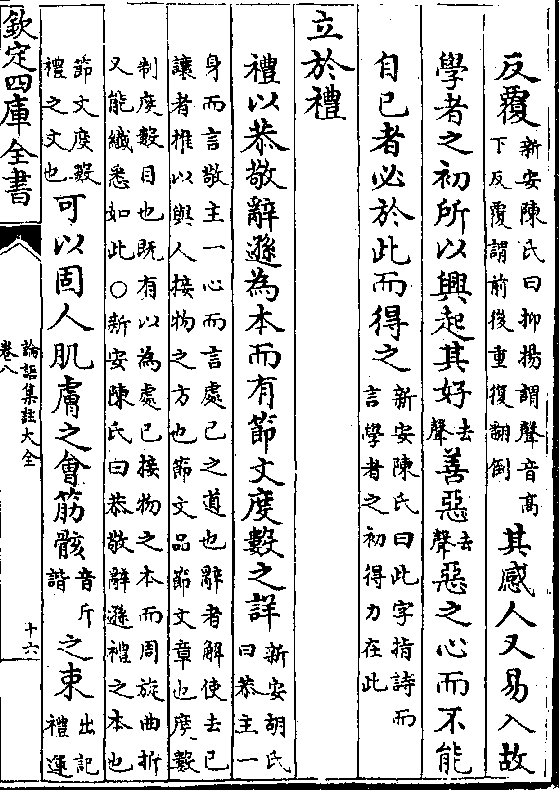 反覆新安陳氏曰抑揚謂聲音髙下反覆謂前後重復翻倒其感人又易入故
學者之初所以興起其好去聲善惡去聲惡之心而不能
自已者必於此而得之新安陳氏曰此字指詩而言學者之初得力在此
立於禮
禮以恭敬辭遜為本而有節文度數之詳新安胡氏曰恭主一
身而言敬主一心而言處已之道也辭者解使去已
讓者推以與人接物之方也節文品節文章也度數
制度數目也既有以為處已接物之本而周旋曲折
又能纖悉如此○新安陳氏曰恭敬辭遜禮之本也
節文度數禮之文也可以固人肌膚之會筋骸音斤諧之束出記禮運
欽定四庫全書
論語集註大全
卷八
十六